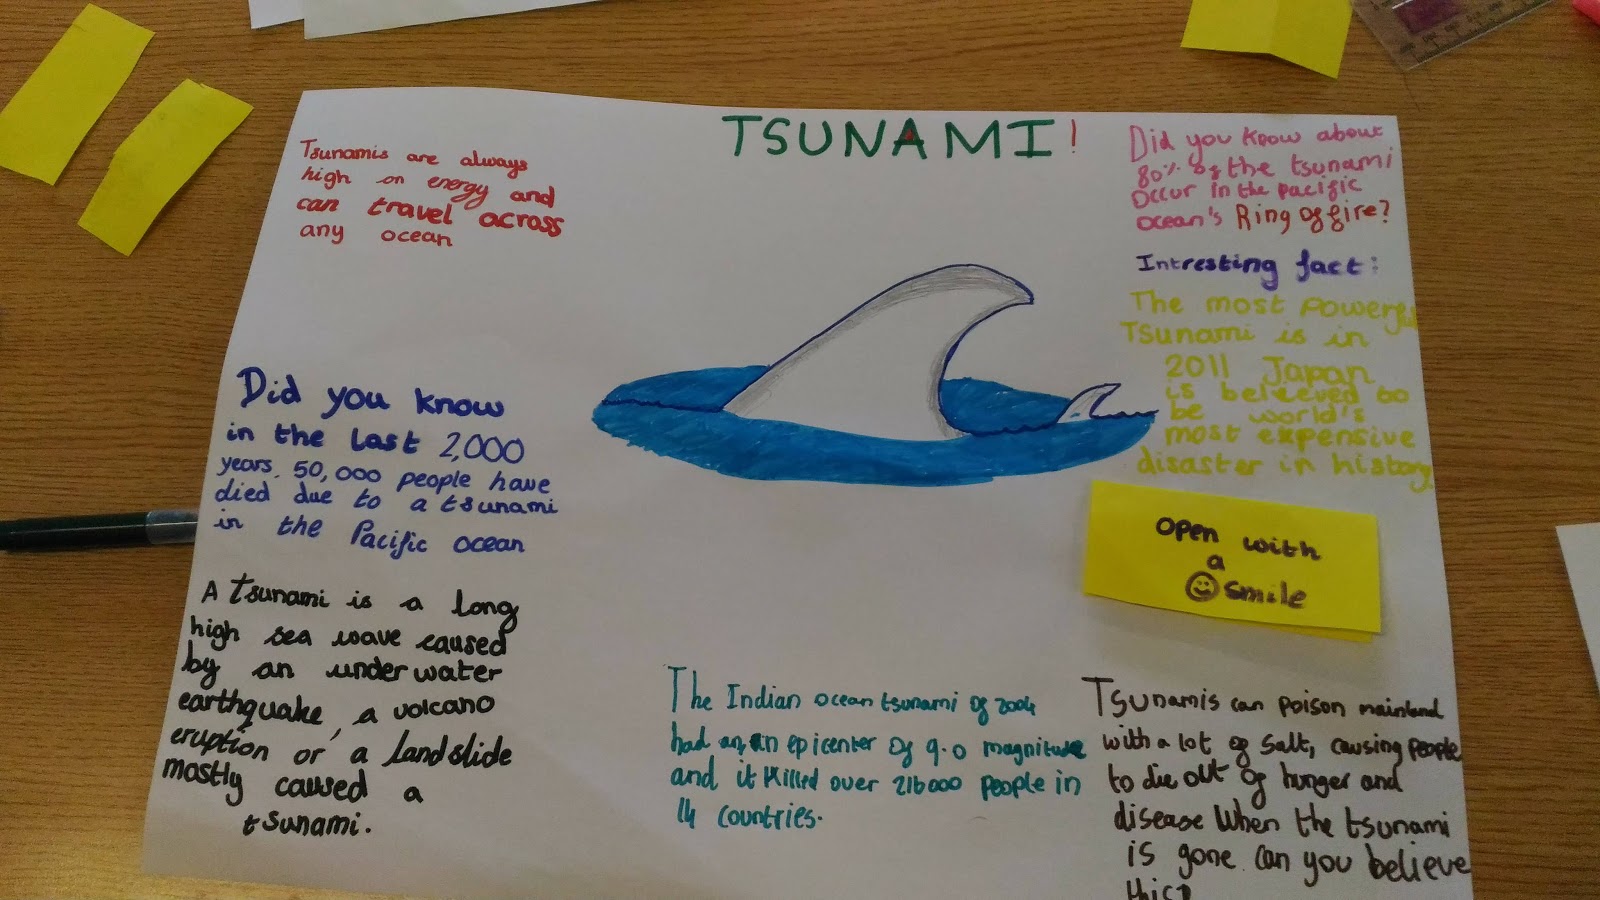 TSUNAMI!
Tsunamis are always
high on energy and
can travel across
any ocean
Did you know
in the last 2,000
years. 50,000 people have
died due to a tsunami
in the Pacific ocean
A tsunami is a long
high sea wave caused
by an under water
earthquake, a volcano
eruption or a landslide
mostly caused a
tsunami.
The Indian ocean tsunami of 2004
had an epicenter of 9.0 magnitude
and it killed over 216000 people in
14 countries.
Did you know about
80% of the tsunami
occur in the pacific
ocean's Ring of fire?
Intresting fact:
The most powerful
Tsunami is in
2011 Japan
is believed to
be world's
most expensive
disaster in history.
open with
a
smile
Tsunamis can poison mainland
with a lot of salt, causing people
to die out of hunger and
disease when the tsunami
is gone. can you believe
this?